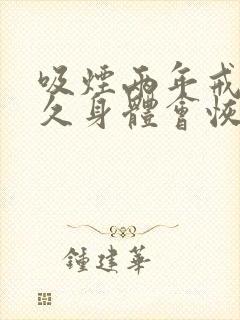 吸煙兩年戒
久身體會恢
鍾建華